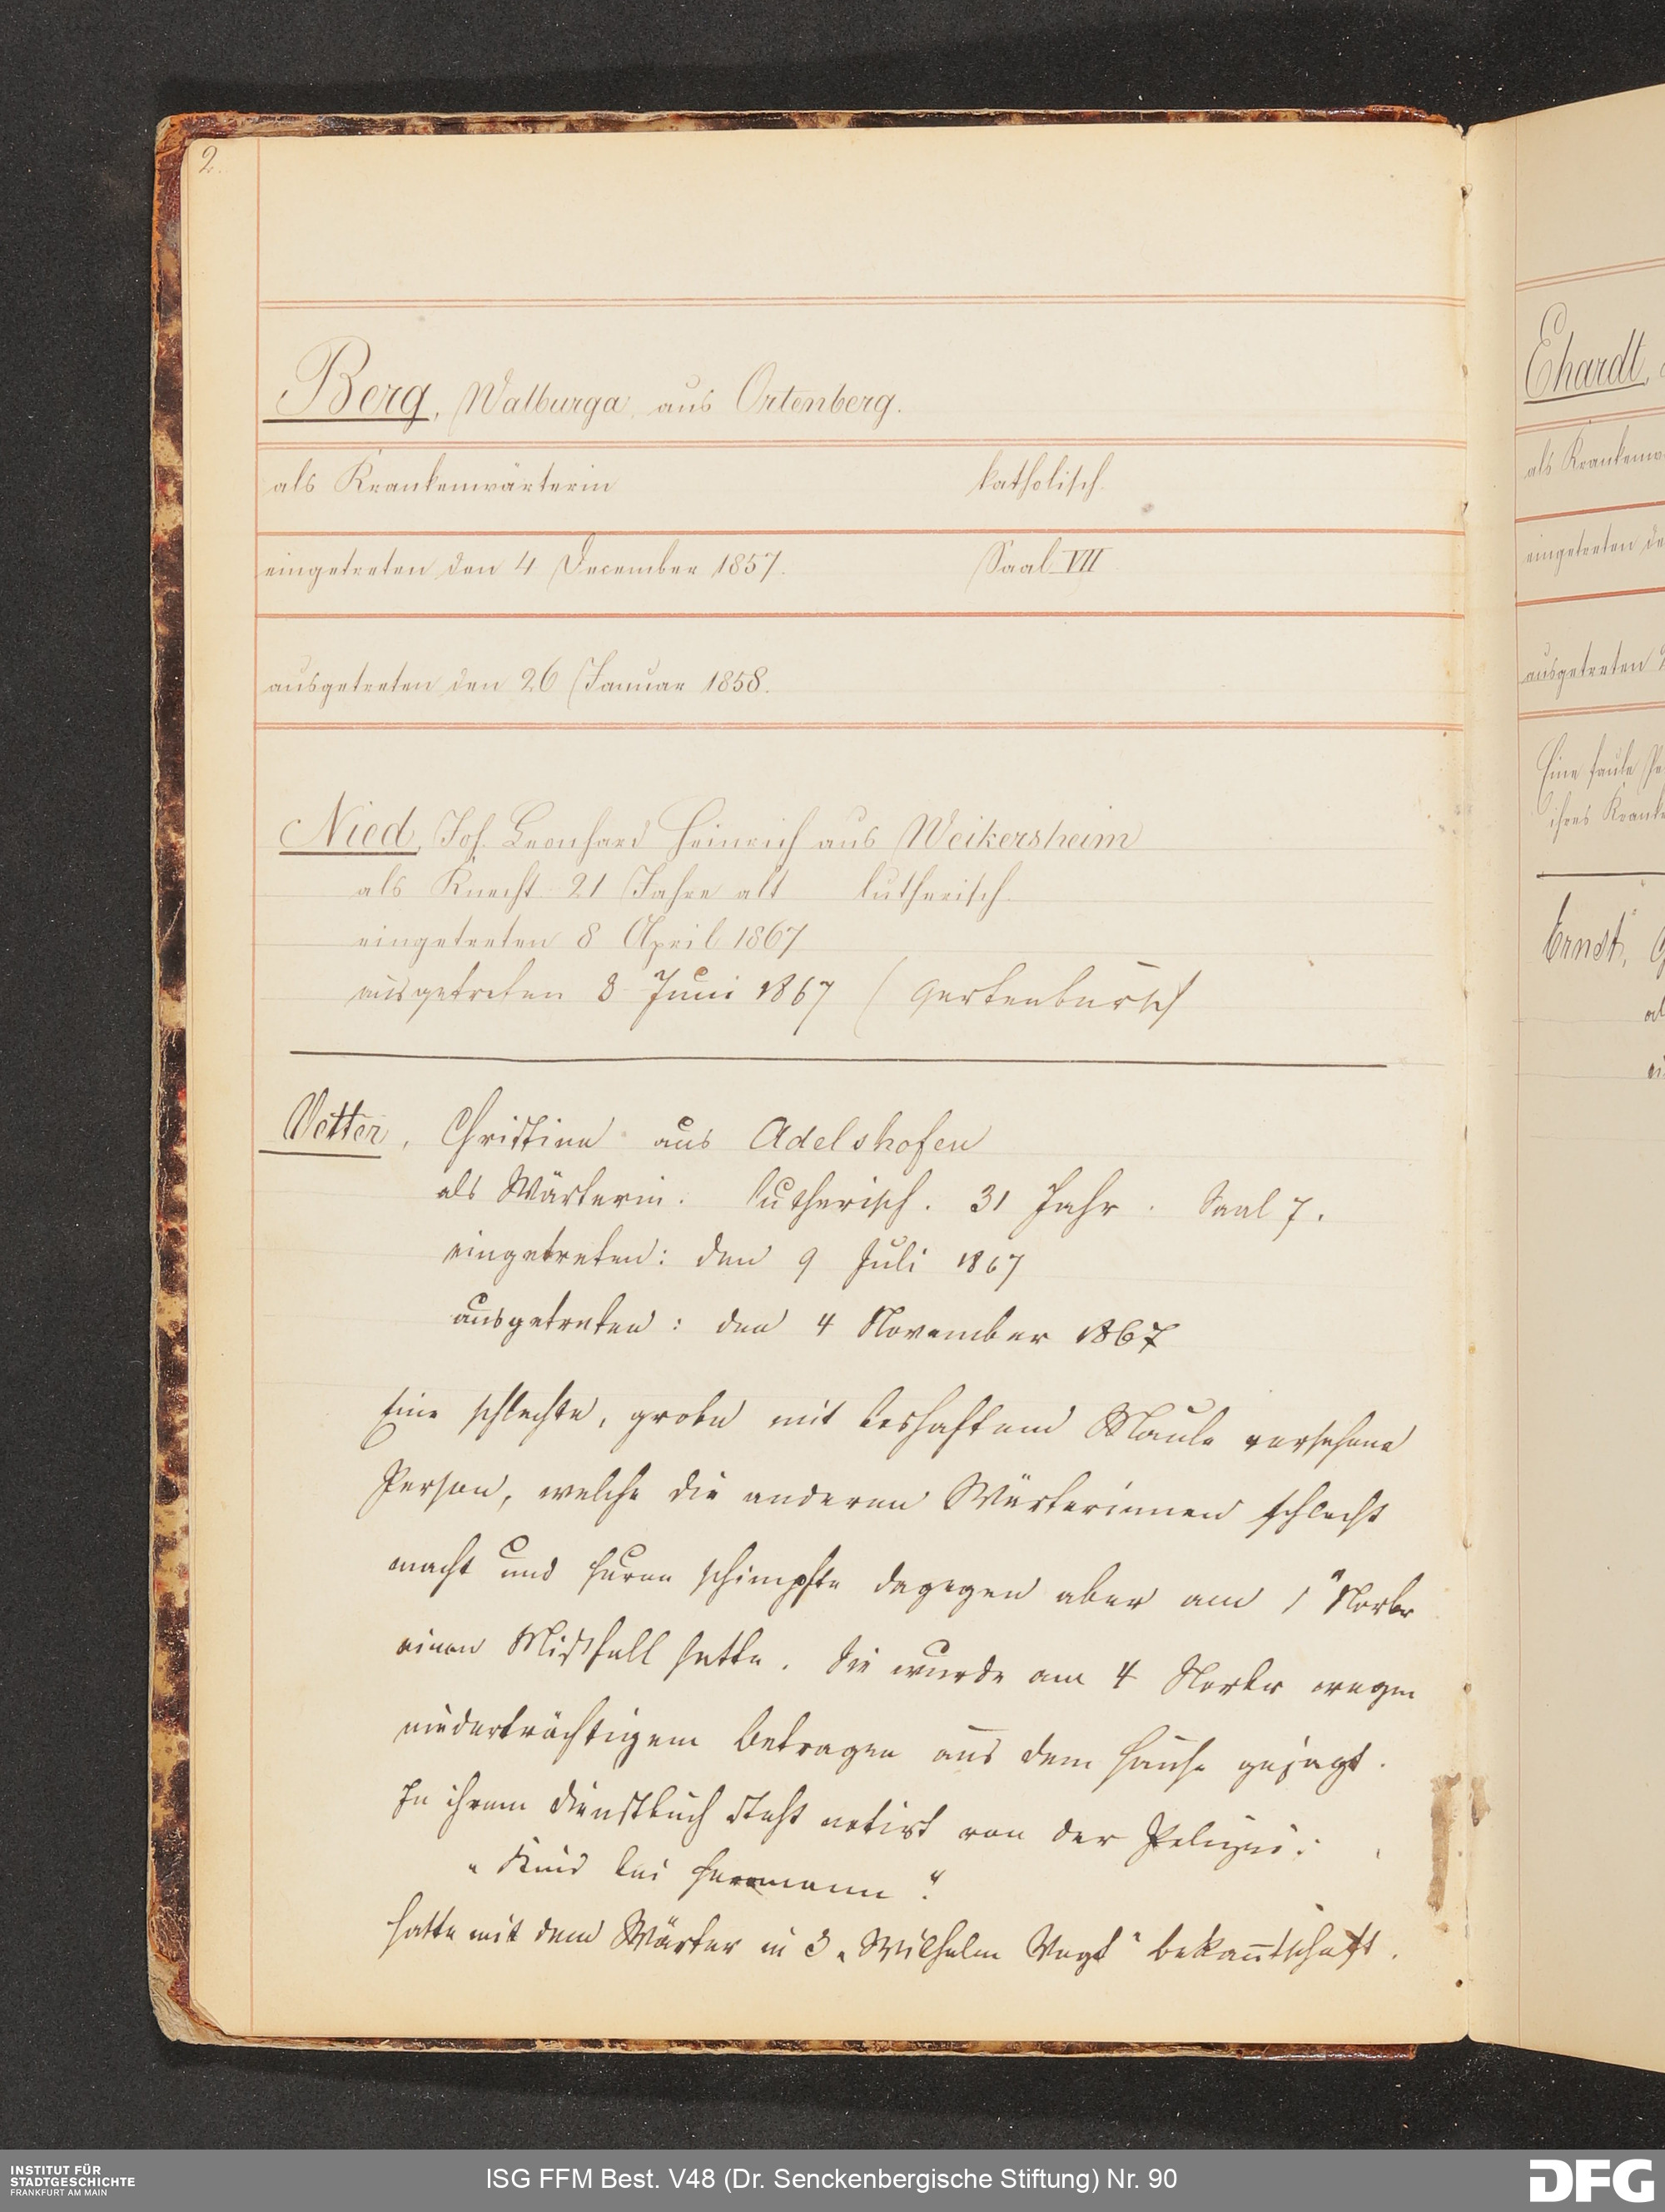 2.
Berg, Walburga, aus Ortenberg.
als Krankenwärterin katholisch.
eingetreten den 4 December 1857. Saal VII
ausgetreten den 26 Januar 1858.
Nied, Joh. Leonhard Heinrich aus Weikersheim
als Knecht 21 Jahre alt lutherisch.
eingetreten 8 April 1867
ausgetreten 8 Juni 1867 (Gartenbursch
Vetter, Christina aus Adelshofen
als Wärterin. lutherisch. 31 Jahr. Saal 7.
eingetreten: den 9 Juli 1867
ausgetreten: den 4 November 1867
Eine schlechte, grobe mit boshaftem Maule versehene
Person, welche die anderen Wärterinnen schlecht
macht und Huren schimpfte dagegen aber am 1 Novbr
einen Mißfall hatte. Sie wurde am 4 Novbr wegen
niederträchtigem Betragen aus dem Hause gejagt.
In ihrem Dienstbuch steht notirt von der Polizei:
"Kind bei Herrmann".
hatte mit dem Wärter in 3 "Wilhelm Vogt" bekanntschaft.
Ehardt,
als Krankenw
eingetreten de
ausgetreten 2
Eine faule Pe
ihres Kranke
Ernst,
al
ei
INSTITUT FÜR
STADTGESCHICHTE
FRANKFURT AM MAIN
ISG FFM Best. V48 (Dr. Senckenbergische Stiftung) Nr. 90
DFG